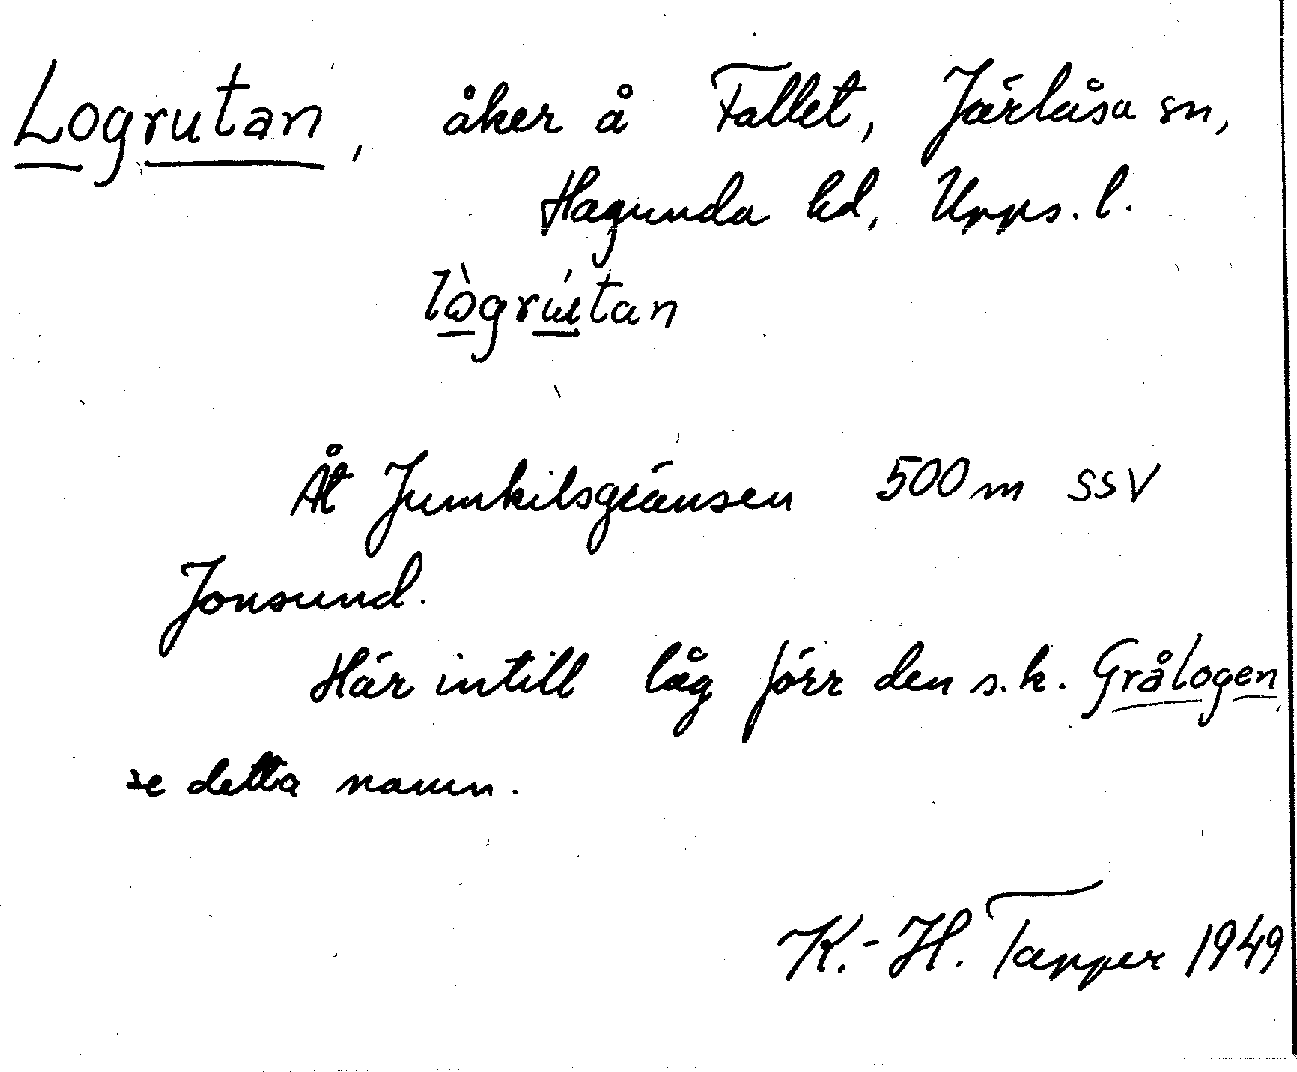 Logrutan, åker å Fallet, Järlåsa sn,
Hagunda hd, Upps. l.
lògrútan
Åt Jumkilsgränsen 500 m SSV
Jonsund.
Här intill låg förr den s.k. Grålogen
se detta namn.
K.-H. Tapper 1949